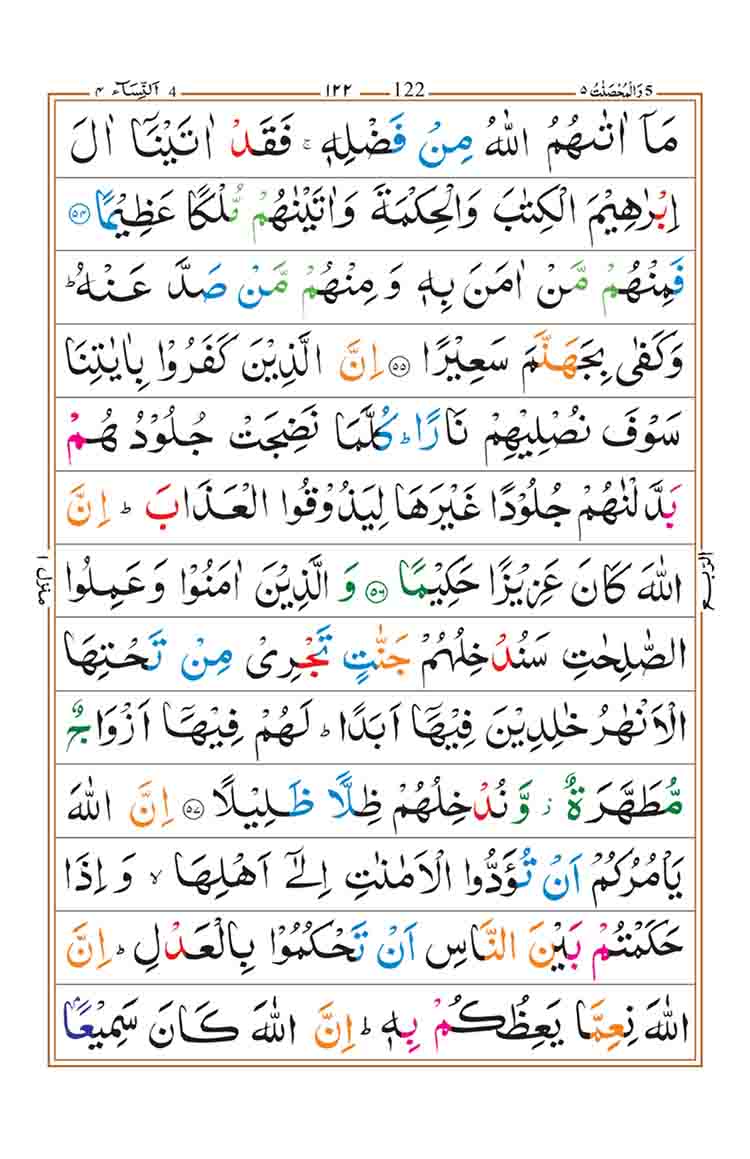 5 وَالْمُحْصَنٰتُ ٥ 122 ١٢٢ 4 اَلنِّسَآء ٤
مَاۤ اٰتٰىهُمُ اللّٰهُ مِنْ فَضْلِهٖ ۚ فَقَدْ اٰتَيْنَاۤ اٰلَ
اِبْرٰهِيْمَ الْكِتٰبَ وَالْحِكْمَةَ وَاٰتَيْنٰهُمْ مُّلْكًا عَظِيْمًا ۝٥٤
فَمِنْهُمْ مَّنْ اٰمَنَ بِهٖ وَمِنْهُمْ مَّنْ صَدَّ عَنْهُ ؕ
وَكَفٰى بِجَهَنَّمَ سَعِيْرًا ۝٥٥ اِنَّ الَّذِيْنَ كَفَرُوْا بِاٰيٰتِنَا
سَوْفَ نُصْلِيْهِمْ نَارًا ؕ كُلَّمَا نَضِجَتْ جُلُوْدُهُمْ
بَدَّلْنٰهُمْ جُلُوْدًا غَيْرَهَا لِيَذُوْقُوا الْعَذَابَ ؕ اِنَّ
اللّٰهَ كَانَ عَزِيْزًا حَكِيْمًا ۝٥٦ وَالَّذِيْنَ اٰمَنُوْا وَعَمِلُوا
الصّٰلِحٰتِ سَنُدْخِلُهُمْ جَنّٰتٍ تَجْرِىْ مِنْ تَحْتِهَا
الْاَنْهٰرُ خٰلِدِيْنَ فِيْهَاۤ اَبَدًا ؕ لَهُمْ فِيْهَاۤ اَزْوَاجٌ
مُّطَهَّرَةٌ ؗ وَّنُدْخِلُهُمْ ظِلًّا ظَلِيْلًا ۝٥٧ اِنَّ اللّٰهَ
يَاْمُرُكُمْ اَنْ تُؤَدُّوا الْاَمٰنٰتِ اِلٰٓى اَهْلِهَا ۙ وَاِذَا
حَكَمْتُمْ بَيْنَ النَّاسِ اَنْ تَحْكُمُوْا بِالْعَدْلِ ؕ اِنَّ
اللّٰهَ نِعِمَّا يَعِظُكُمْ بِهٖ ؕ اِنَّ اللّٰهَ كَانَ سَمِيْعًۢا
الرُّبع
منزل ١